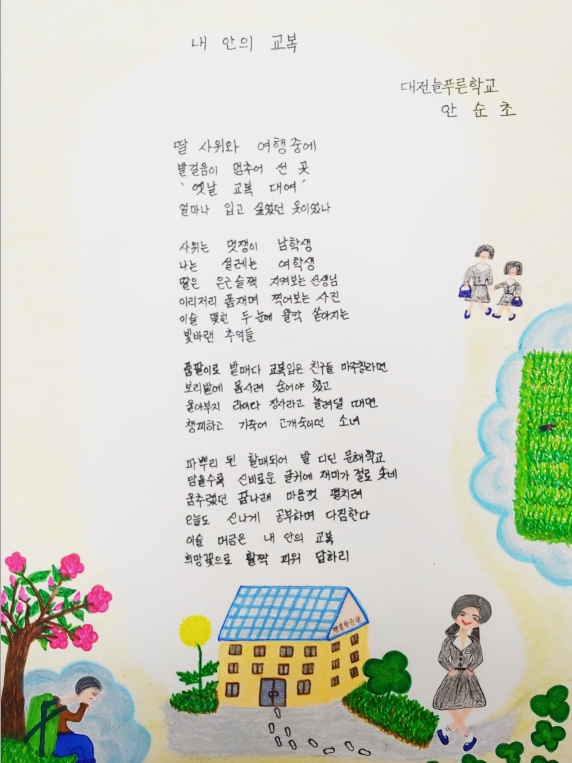 내 안의 교복
대전늘푸른학교
안 순 초
딸 사위와 여행중에
발걸음이 멈추어 선 곳
'옛날 교복 대여'
얼마나 입고 싶었던 옷이었나
사위는 멋쟁이 남학생
나는 설레는 여학생
딸은 은근슬쩍 지켜보는 선생님
이리저리 폼재며 찍어보는 사진
이슬 맺힌 두 눈에 왈칵 쏟아지는
빛바랜 추억들
품팔이로 밭매다 교복입은 친구들 마주칠라면
보리밭에 몸사려 숨어야 했고
울아부지 라이타 장사라고 놀려댈 때면
챙피하고 기죽어 고개숙이던 소녀
파뿌리 된 할매되어 발 디딘 문해학교
담을수록 신비로운 글귀에 재미가 절로 솟네
움추렸던 꿈나래 마음껏 펼치려
오늘도 신나게 공부하며 다짐한다
이슬 머금은 내 안의 교복
희망꽃으로 활짝 피워 답하리